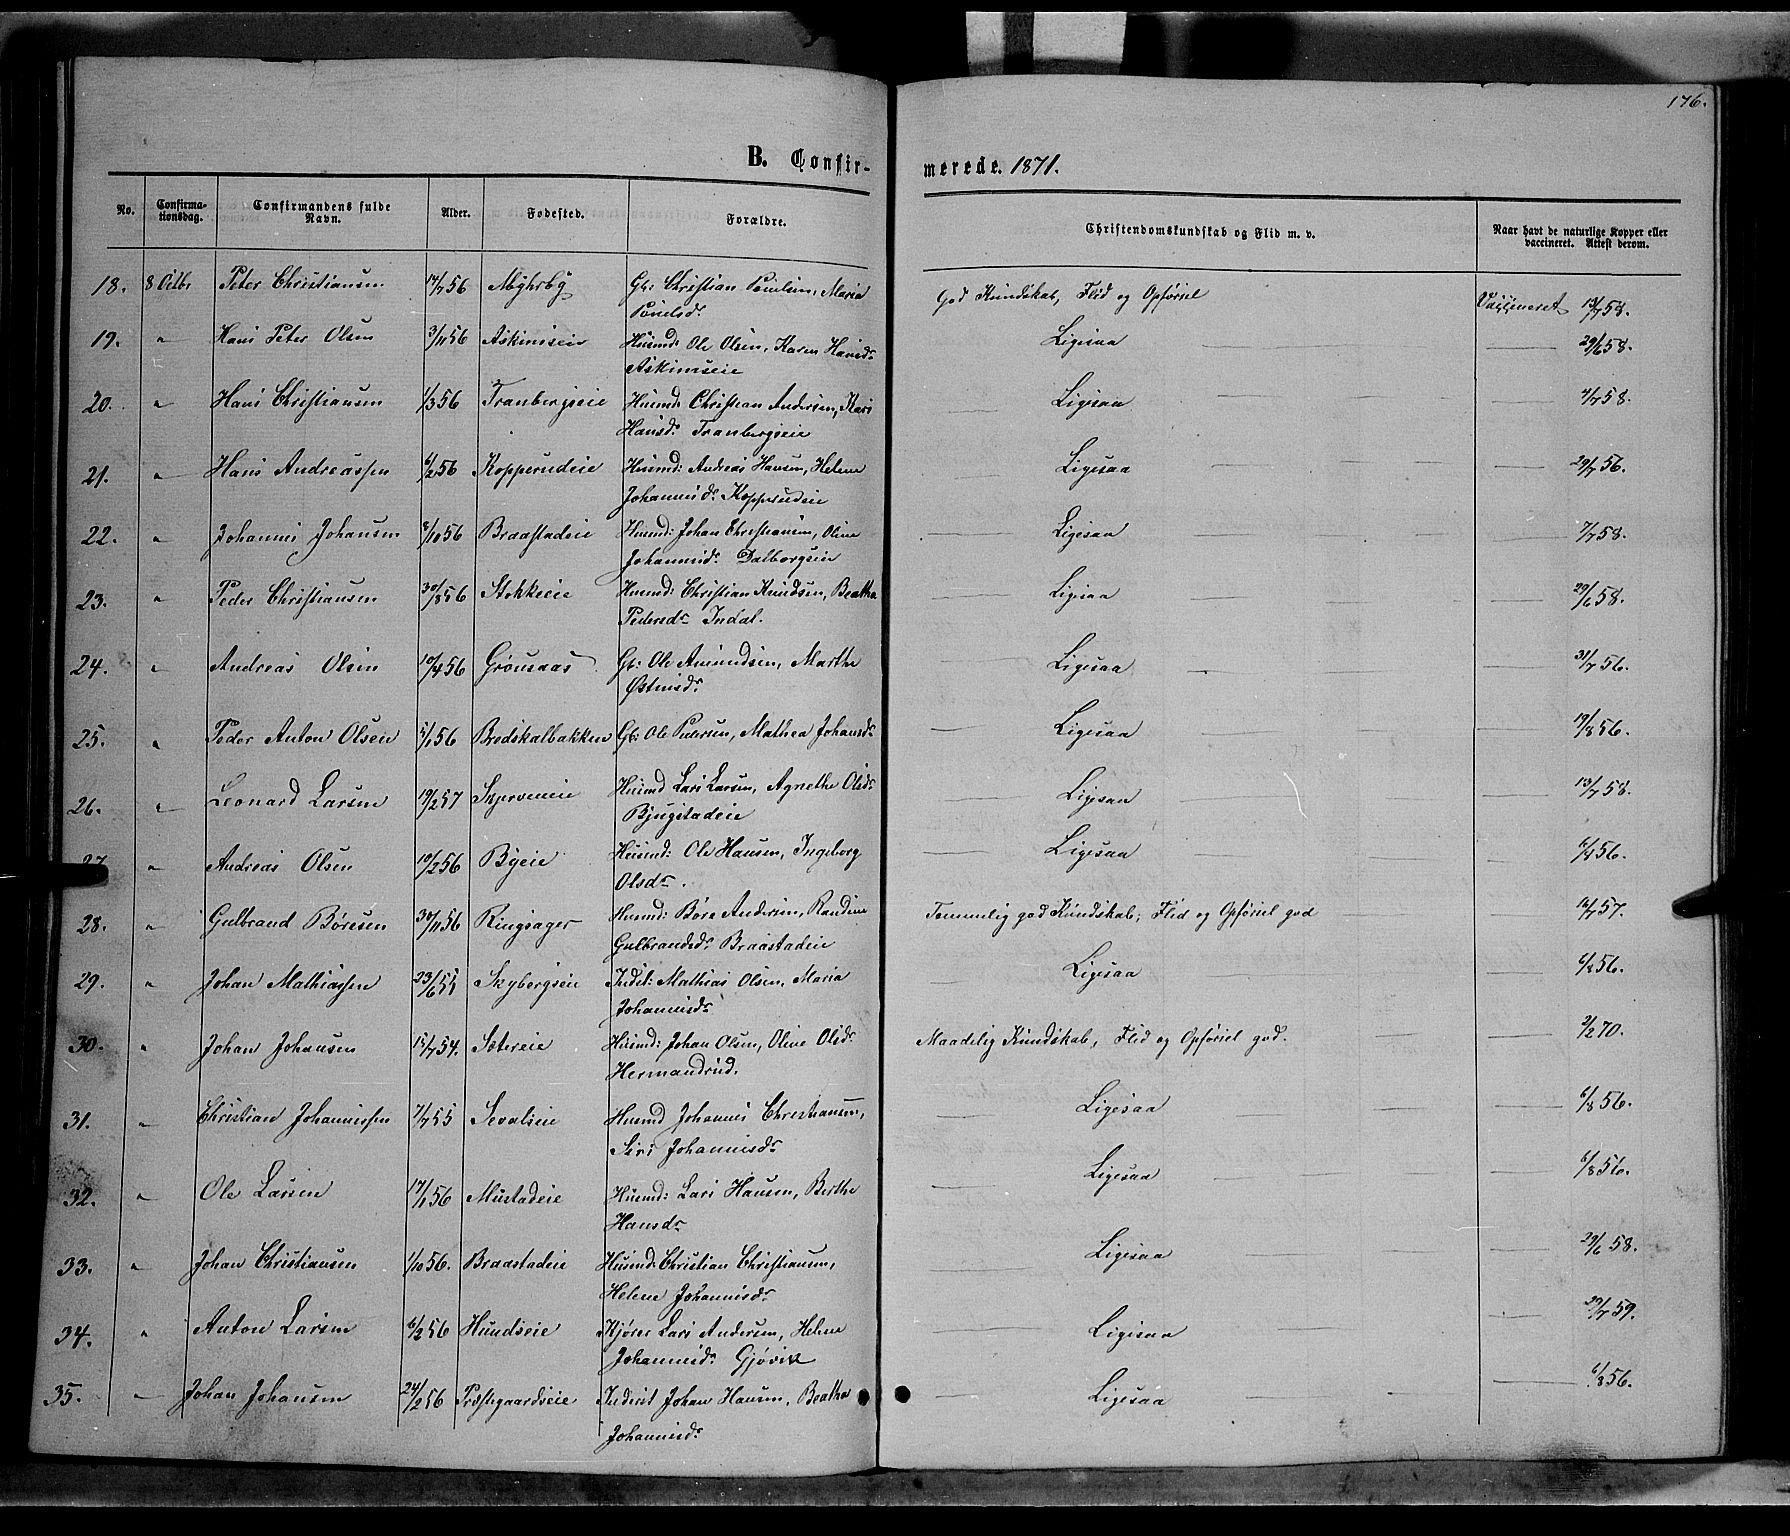 176.
B. Confir-
merede. 1871.
No. Confirma-tionsdag. Confirmandens fulde Navn. Alder. Fødested. Forældre. Christendomskundskab og Flid m. v. Naar havt de naturlige Kopper eller vaccineret. Attest derom.
18. 8 Octbr Peter Christiansen 14/7 56 Myhrby Gb: Christian Poulsen, Maria God Kundskab, Flid og Opførsel Vaccineret 13/7 58.
Poulsdr
19. " Hans Peter Olsen 3/11 56 Askimseie Husmd: Ole Olsen, Karen Hansdr Ligesaa 29/6 58.
Askimseie
20. " Hans Christiansen 1/3 56 Tranbergseie Husmd: Christian Andersen, Kari Ligesaa 7/7 58.
Hansdr Tranbergseie
21. " Hans Andreassen 6/2 56 Kopperudeie Husmd: Andreas Hansen, Helene Ligesaa 29/7 56.
Johannisdr Kopperudeie
22. " Johannes Johansen 8/10 56 Braastadeie Husmd: Johan Christiansen, Oline Ligesaa 7/7 58.
Johannisdr Dalborgseie
23. " Peder Christiansen 30/8 56 Stokkeeie Husmd: Christian Knudsen, Beatha Ligesaa 29/6 58.
Pedersdr Indal.
24. " Andreas Olsen 10/4 56 Grøusaas Gb: Ole Amundsen, Marthe Ligesaa 31/7 56.
Østensdr
25. " Peder Anton Olsen 5/1 56 Bredskalbakken Gb: Ole Pedersen, Mathea Johansdr Ligesaa 19/8 56.
26. " Leonard Larsen 19/2 57 Skjerveneie Husmd Lars Larsen, Agnethe Olsdr Ligesaa 13/7 58.
Bjugstadeie
27. " Andreas Olsen 19/2 56 Byeie Husmd: Ole Hansen, Ingeborg Ligesaa 56.
Olsdr.
28. " Gulbrand Børesen 30/11 56 Ringsager Husmd: Børe Andersen, Randine Temmelig god Kundskab, Flid og Opførsel god 57.
Gulbrandsdr Braastadeie
29. " Johan Mathiassen 23/6 55 Skybergseie Indst: Mathias Olsen, Maria Ligesaa 6/8 56.
Johannisdr
30. " Johan Johansen 15/7 54. Sætereie Husmd: Johan Olsen, Oline Olsdr Maadelig Kundskab, Flid og Opførsel god. 3/2 70.
Hermandrud.
31. " Christian Johannissen 7/7 55 Sevalseie Husmd Johannes Christiansen, Ligesaa 6/8 56.
Siri Johannisdr
32. " Ole Larsen 17/1 56 Mustadeie Husmd: Lars Hansen, Berthe Ligesaa 6/8 56.
Hansdr
33. " Johan Christiansen 1/10 56. Braastadeie Husmd: Christian Christiansen, Ligesaa 29/6 58.
Helene Johannisdr
34. " Anton Larsen 6/2 56 Hundseie Kjører Lars Andersen, Helene Ligesaa 29/7 59.
Johannisdr Gjøvik
35. Johan Johansen 24/2 56 Præstegaardseie Inderst Johan Hansen, Beatha Ligesaa 6/8 56.
Johannisdr